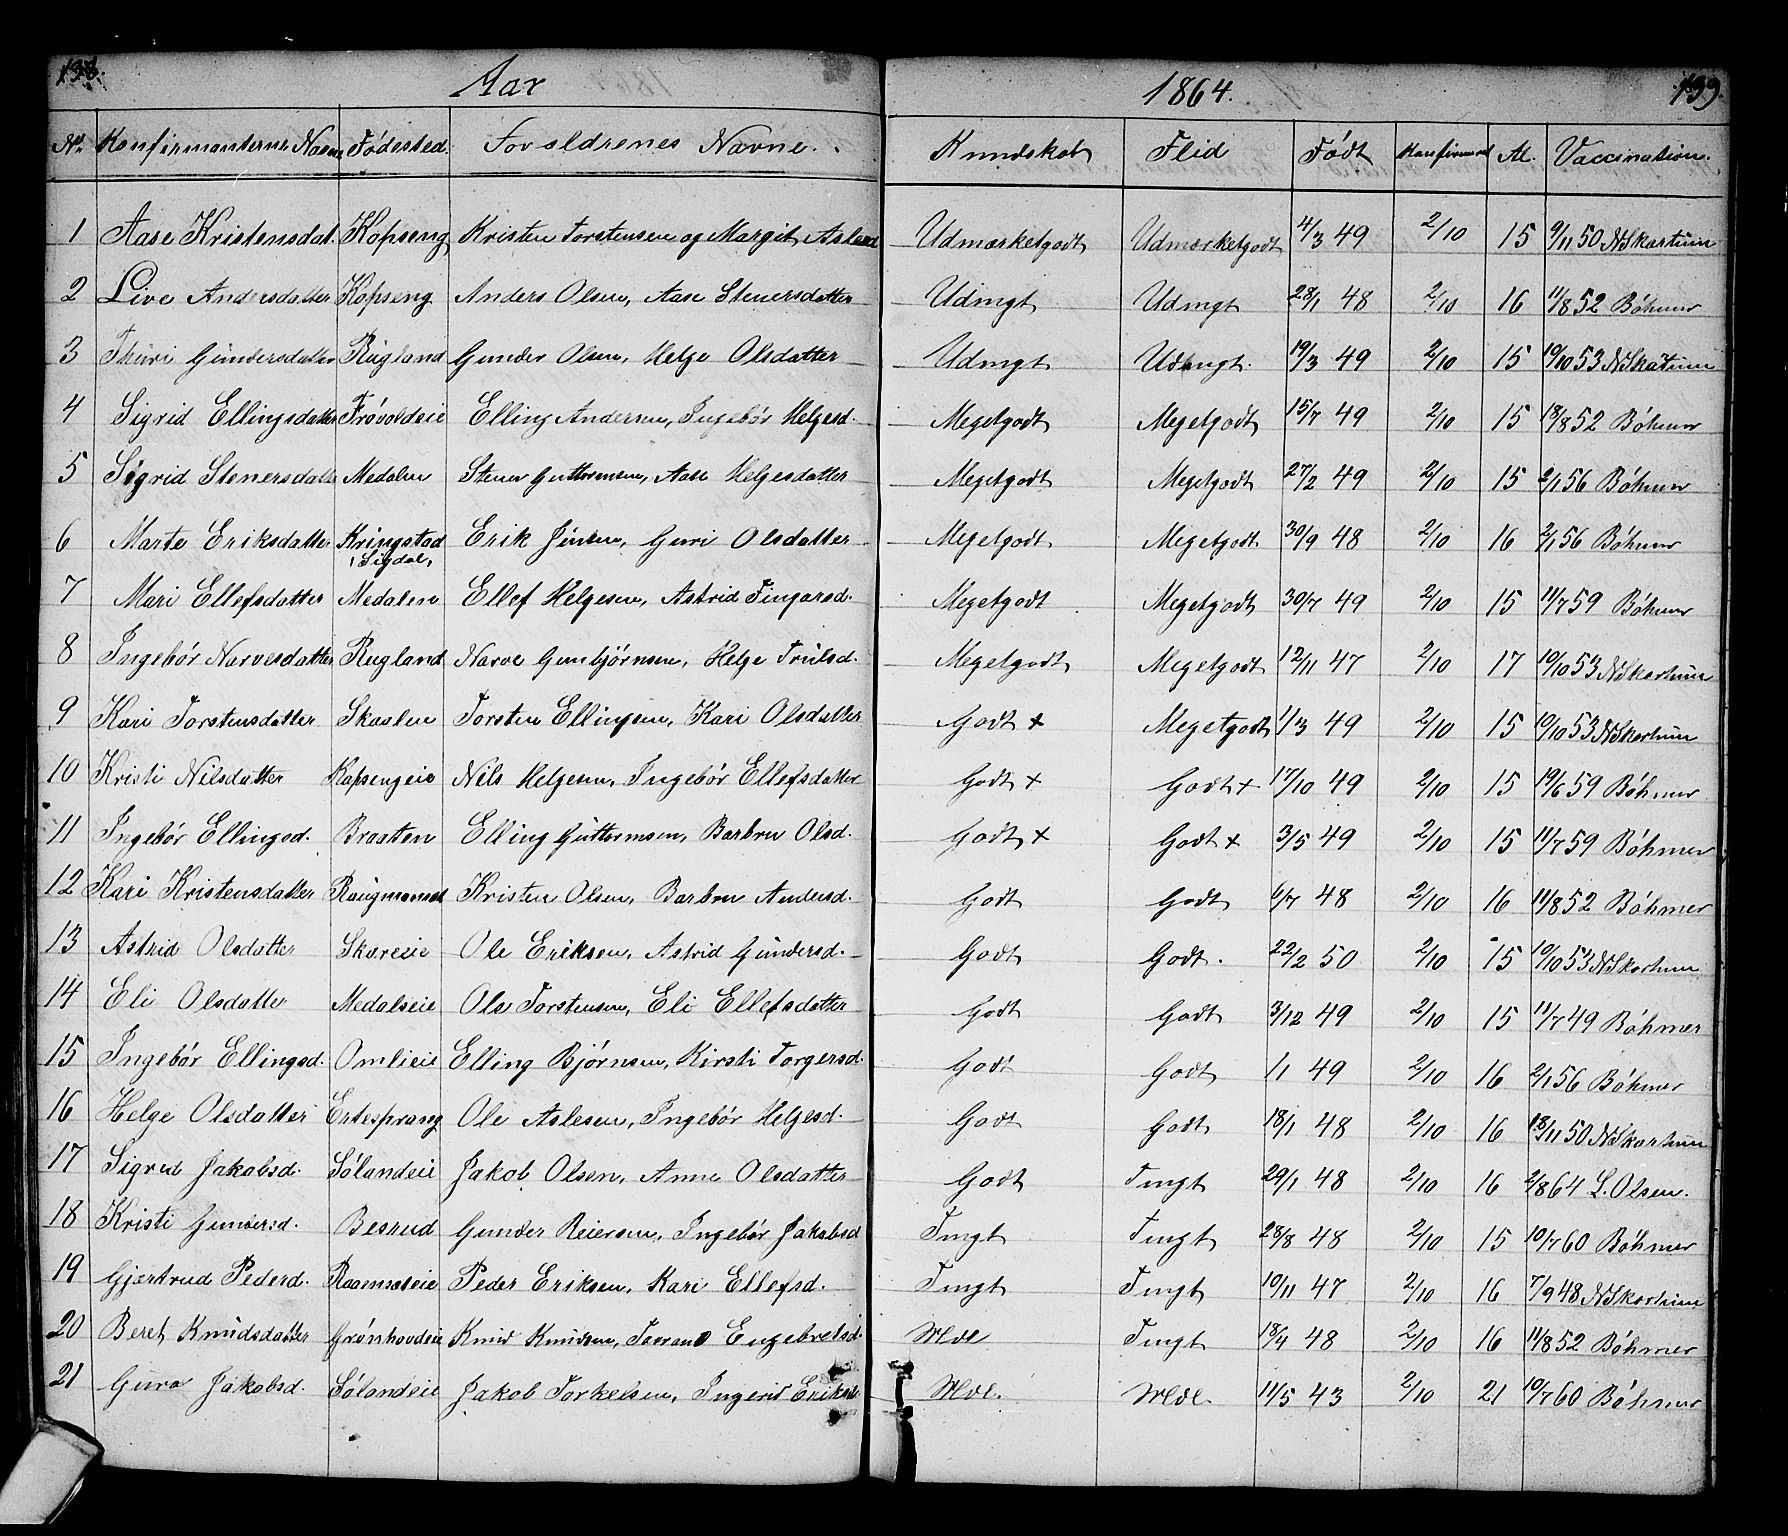 138. Aar 1864. 139.
No. Konfirmanterne Navne Födested. Forældrenes Navne. Kundskab Flid Födt Konfirmered Al. Vaccination.
1 Aase Kristensdat. Kopseng Kristen Torstensen og Margit Asles Udmærketgodt Udmærketgodt 4/3 49 2/10 15 9/11 50 N Skartum
2 Live Andersdatter Kopseng Anders Olsen, Aase Stenersdatter Udmgt Udmgt 28/1 48 2/10 16 11/8 52 Böhmer
3 Thuri Gundersdatter Rugland Gunder Olsen, Helge Olsdatter Udmgt Udmgt. 19/3 49 2/10 15 10/10 53 N Skartum
4 Sigrid Ellingsdatter Frövoldeie Elling Andersen, Ingebör Helgesd. Megetgodt Megetgodt 15/7 49 2/10 15 18/8 52 Böhmer
5 Sigrid Stenersdatter Medalen Stener Guttormsen, Aase Helgesdatter Megetgodt Megetgodt 27/2 49 2/10 15 2/1 56 Böhmer
6 Marte Eriksdatter Kringstad Erik Jensen, Guri Olsdatter Megetgodt Megetgodt 30/9 48 2/10 16 2/1 56 Böhmer
i Sigdal
7 Mari Ellefsdatter Medalen Ellef Helgesen, Astrid Fingarsd. Megetgodt Megetgodt 30/7 49 2/10 15 11/7 59 Böhmer
8 Ingebör Narvesdatter Rugland Narve Gunbjörnsen, Helge Trulsd. Megetgodt Megetgodt 12/11 47 2/10 17 10/10 53 N Skartum
9 Kari Torstensdatter Skaalen Torsten Ellingsen, Kari Olsdatter Godt + Megetgodt 1/3 49 2/10 15 10/10 53 N Skartum
10 Kristi Nilsdatter Kopsengeie Nils Helgesen, Ingebör Ellefsdatter Godt + Godt + 17/10 49 2/10 15 19/6 59 Böhmer
11 Ingebör Ellingsd. Braaten Elling Guttormsen, Barbru Olsd. Godt + Godt + 3/5 49 2/10 15 11/7 59 Böhmer
12 Kari Kristensdatter Kristen Olsen, Barbru Andersd. Godt Godt 6/7 48 2/10 16 11/8 52 Böhmer
13 Astrid Olsdatter Skareeie Ole Eriksen, Astrid Gundersd. Godt Godt. 22/2 50 2/10 15 10/10 53 N Skartum
14 Eli Olsdatter Medalseie Ole Torstensen, Eli Ellefsdatter Godt Godt 3/12 49 2/10 15 11/7 49 Böhmer
15 Ingebör Ellingsd. Omlieie Elling Björnsen, Kirsti Torgersd. Godt Godt 1/1 49 2/10 16 2/1 56 Böhmer
16 Helge Olsdatter Ertesprang Ole Aslesen, Ingebör Helgesd. Godt Godt 18/1 48 2/10 16 18/11 50 N Skartum
17 Sigrid Jakobsd. Sölandeie Jakob Olsen, Anne Olsdatter Godt Tmgt 29/1 48 2/10 16 2/8 64 L. Olsen.
18 Kristi Gundersd. Besrud Gunder Reiersen, Ingebör Jakobsd Tmgt Tmgt 28/8 48 2/10 15 10/7 60 Böhmer
19 Gjertrud Pedersd. Raaenseie Peder Eriksen, Kari Ellefsd. Tmgt Tmgt 10/11 47 2/10 16 7/9 48 N Skartum
20 Beret Knudsdatter Grönhovdeie Knud Knudsen, Engebretsd. Mdl Tmgt 18/4 48 2/10 16 11/8 52 Böhmer
21 Guro Jakobsd. Sölandeie Jakob Torkelsen, Ingerid Eriksd. Mdl. Mdl. 11/5 43 2/10 21 10/7 60 Böhmer